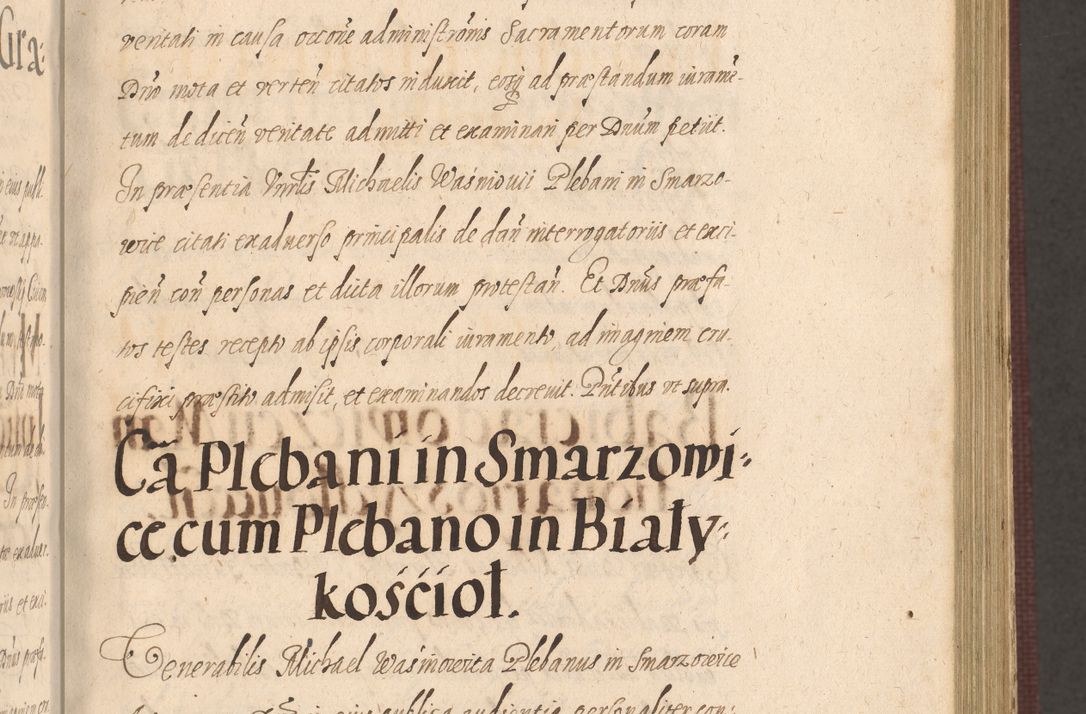 veritati in causa occõne administrõnis Sacramentorum coram
Dnõ mota et verten̄ citatos induxit, eosq̃ ad præstandum iurame-
tum de dicen̄ veritate admitti et examinari per Dnūm petiit.
In præsentia Vnrlis Michaelis Waśniovii Plebani in Smarzo-
wice citati ex adverso principalis de dan̄ interrogatoriis et exci-
pien̄ con̄ personas et dicta illorum protestan̄. Et Dnūs præfa-
tos testes recepto ab ipsis corporali iuramento, ad imaginem cru-
cifixi præstito admisit, et examinandos decrevit. Pn̄tibus vt supra.
Cã Plebani in Smarzowi-
ce cum Plebano in Biały-
kośćioł.
Venerabilis Michael Waśniowita Plebanus in Smarzowice
publica audientia personaliter con-